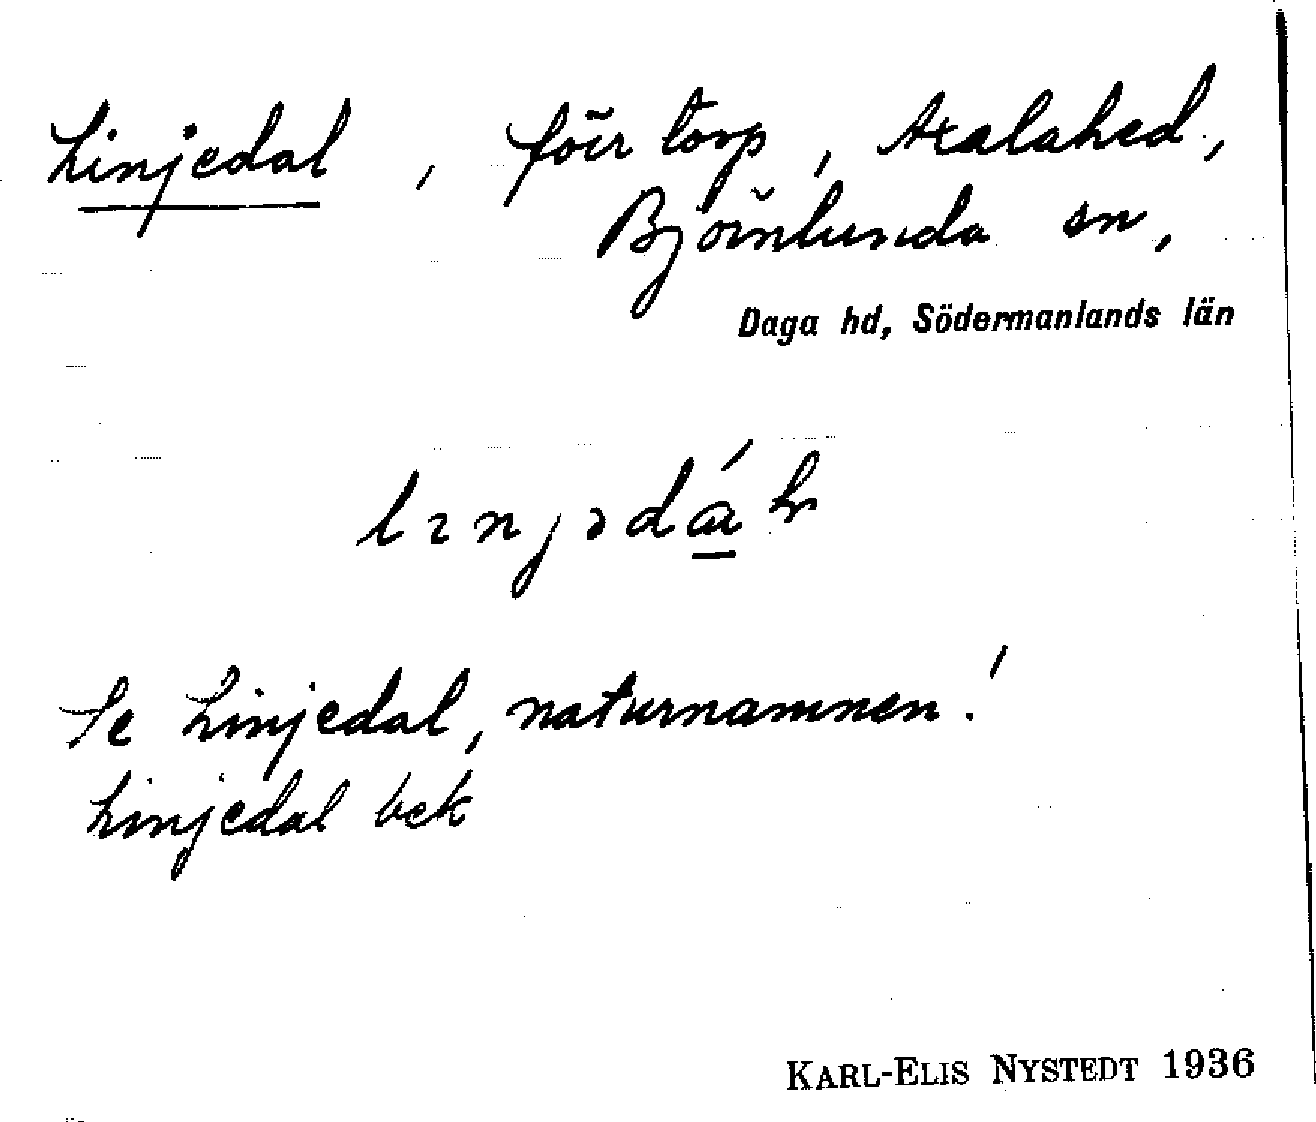 Linjedal, förr torp, Axalahed,
Björnlunda sn,
Daga hd, Södermanlands län
Se Linjedal, naturnamnen!
Linjedal bek
KARL-ELIS NYSTEDT 1936